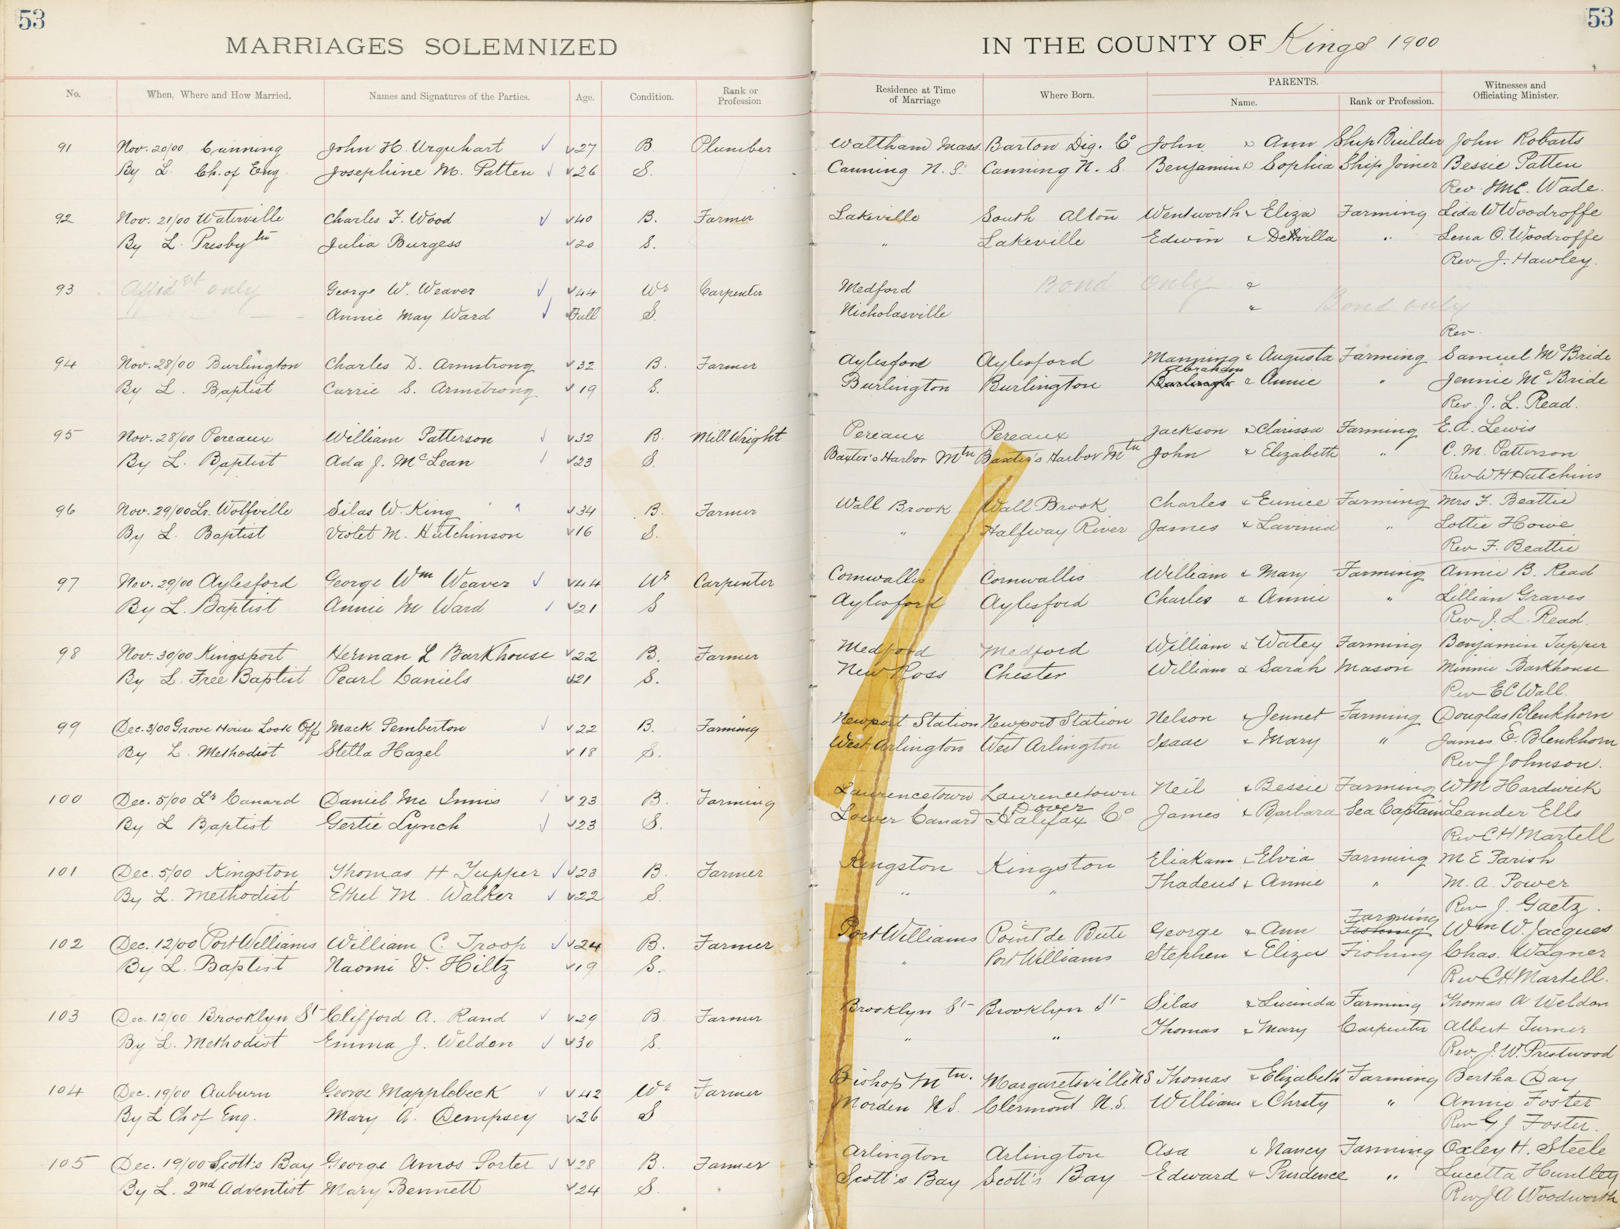 53
53
MARRIAGES SOLEMNIZED
IN THE COUNTY OF Kings 1900
No. When, Where and How Married. Names and Signatures of the Parties. Age. Condition. Rank or Profession Residence at Time of Marriage Where Born. PARENTS. Name. Rank or Profession. Witnesses and Officiating Minister.
91 Nov. 20/00 Canning John H. Urquhart 27 B Plumber Waltham Mass Barton Dig. Co John & Ann Ship Builder John Robarts
By L Ch. of Eng. Josephine M. Patten 26 S. Canning N. S. Canning N. S. Benjamin & Sophia Ship Joiner Bessie Patten
Rev Wade.
92 Nov. 21/00 Waterville Charles F. Wood 40 B. Farmer Lakeville South Alton Wentworth & Eliza Farming Lida W Woodroffe
By L. Presbytn Julia Burgess 20 S. " Lakeville Edwin & " Lena O. Woodroffe
Rev J. Hawley.
93 only George W. Weaver 44 Wr Carpenter Medford Bond only &
Annie May Ward Full S. Nicholasville " Bond only
Rev.
94 Nov. 28/00 Burlington Charles D. Armstrong 32 B. Farmer Aylesford Aylesford Manning & Augusta Farming Samuel McBride
By L. Baptist Carrie S. Armstrong 19 S. Burlington Burlington Abraham & Annie " Jennie McBride
Rev. J. L. Read.
95 Nov. 28/00 Pereaux William Patterson 32 B. Mill Wright Pereaux Pereaux Jackson & Clarissa Farming E. A. Lewis
By L. Baptist Ada J. McLean 23 S. Baxter's Harbor Mtn Baxter's Harbor Mtn John & Elizabeth " C. M. Patterson
Rev W H Hutchins
96 Nov. 29/00 Lr. Wolfville Silas W. King 34 B. Farmer Wall Brook Wall Brook Charles & Eunice Farming Mrs F. Beattie
By L. Baptist Violet M. Hutchinson 16 S. " Halfway River James & Lavinia " Lottie Howe
Rev F. Beattie
97 Nov. 29/00 Aylesford George Wm Weaver 44 Wr Carpenter Cornwallis Cornwallis William & Mary Farming Annie B. Read
By L. Baptist Annie M Ward 21 S Aylesford Aylesford Charles & Annie " Lillian Graves
Rev J. L. Read.
98 Nov. 30/00 Kingsport Herman L Barkhouse 22 B. Farmer Medford Medford William & Watey Farming Benjamin Tupper
By L. Free Baptist Pearl Daniels 21 S. New Ross Chester William & Sarah Mason Minnie Barkhouse
Rev E C Wall.
99 Dec. 3/00 Grove House Look Off Mack Pemberton 22 B. Farming Newport Station Newport Station Nelson & Jennet Farming Douglas Blenkhorn
By L. Methodist Stella Hazel 18 S. West Arlington West Arlington Isaac & Mary " James E. Blenkhorn
Rev J Johnson.
100 Dec. 5/00 Lr Canard Daniel Mc Innis 23 B. Farming Laurencetown Laurencetown Neil & Bessie Farming W M Hardwick
By L Baptist Gertie Lynch 23 S. Lower Canard Dover Halifax Co James & Barbara Sea Captain Leander Ells
Rev C H Martell
101 Dec. 5/00 Kingston Thomas H Tupper 23 B. Farmer Kingston Kingston Eliakam & Elvia Farming M E Parish
By L. Methodist Ethel M. Walker 22 S. " " Thadeus & Annie " M. A. Power
Rev J. Gaetz.
102 Dec. 12/00 Port Williams William C. Troop 24 B. Farmer Port Williams Point de Bute George & Ann Farming Wm W. Jacques
By L. Baptist Naomi V. Hiltz 19 S. " Port Williams Stephen & Eliza Fishing Chas. Wagner
Rev C H Martell.
103 Dec. 12/00 Brooklyn St Clifford A. Rand 29 B Farmer Brooklyn St Brooklyn St Silas & Lucinda Farming Thomas A Weldon
By L. Methodist Emma J. Weldon 30 S. " " Thomas & Mary Carpenter Albert Turner
Rev J. W. Prestwood
104 Dec. 19/00 Auburn George Mapplebeck 42 Wr Farmer Bishop Mtn. Margaretsville N S Thomas & Elizabeth Farming Bertha Day
By L Ch of Eng. Mary A. Dempsey 26 S Morden N. S. Clermont N. S. William & Christy " Annie Foster
Rev G J Foster.
105 Dec. 19/00 Scott's Bay George Amos Porter 28 B. Farmer Arlington Arlington Asa & Nancy Farming Oxley H. Steele
By L. 2nd Adventist Mary Bennett 24 S. Scott's Bay Scott's Bay Edward & Prudence " Lucetta Huntley
Rev J A Woodworth